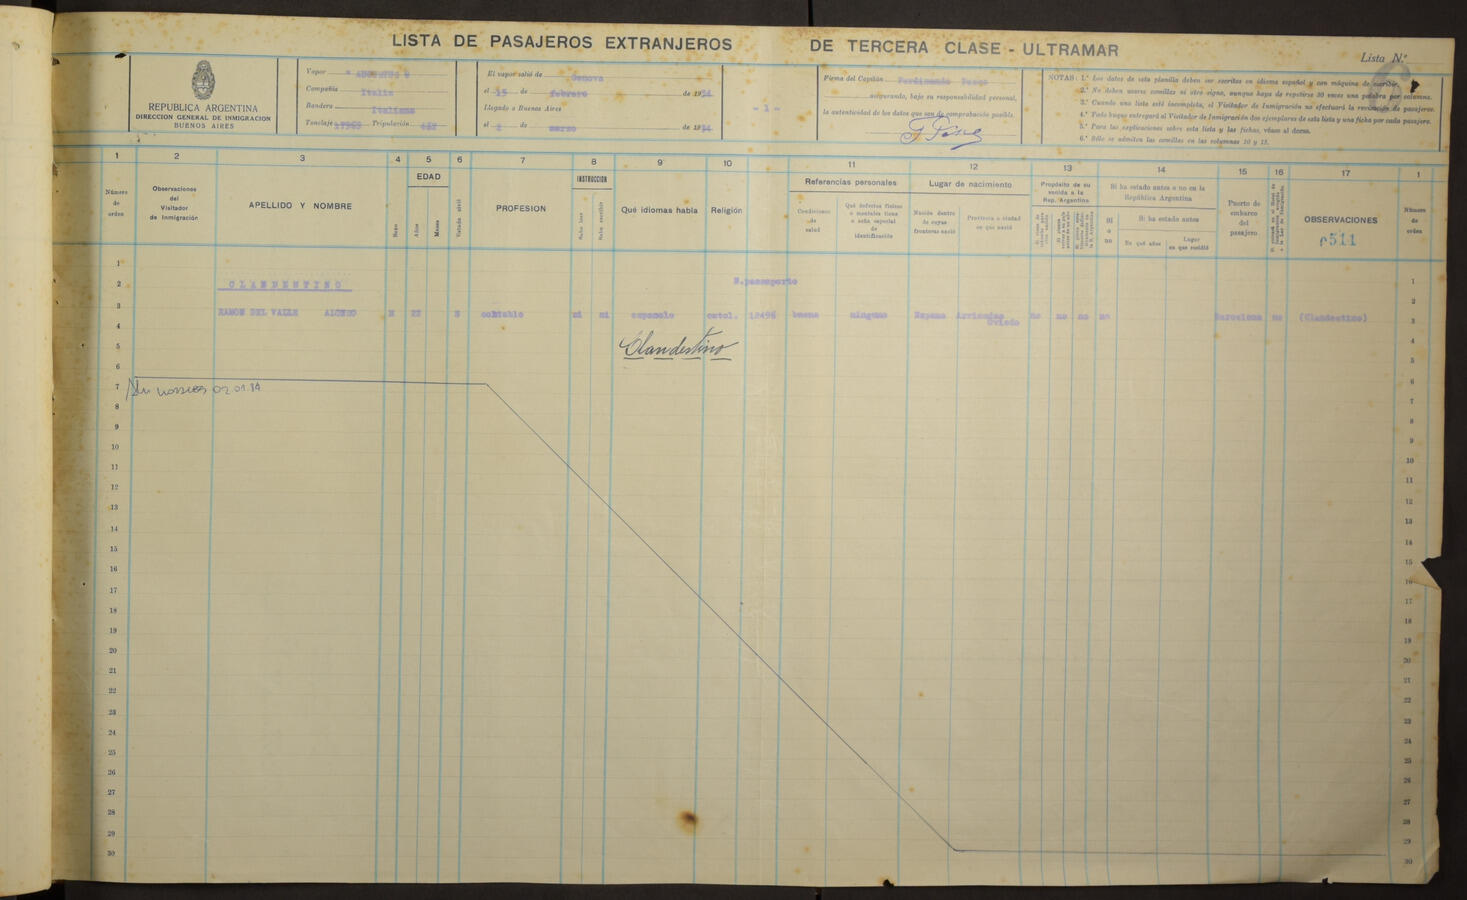 LISTA DE PASAJEROS EXTRANJEROS DE TERCERA CLASE - ULTRAMAR
Lista N.º
REPUBLICA ARGENTINA
DIRECCION GENERAL DE INMIGRACION
BUENOS AIRES
Vapor " AUGUSTUS "
Compañía Italia
Bandera Italiana
Tonelaje Tripulación
El vapor salió de Genova
el 15 de febrero de 1954
Llegado a Buenos Aires
el 2 de marzo de 1954
- 1 -
Firma del Capitán
asegurando, bajo su responsabilidad personal,
la autenticidad de los datos que son de comprobación posible.
NOTAS: 1.ª Los datos de esta planilla deben ser escritos en idioma español y con máquina de escribir.
2.ª No deben usarse comillas ni otro signo, aunque haya de repetirse 30 veces una palabra por columna.
3.ª Cuando una lista esté incompleta, el Visitador de Inmigración no efectuará la revisación de pasajeros.
4.ª Todo buque entregará al Visitador de Inmigración dos ejemplares de esta lista y una ficha por cada pasajero.
5.ª Para las explicaciones sobre esta lista y las fichas, véase al dorso.
6.ª Sólo se admiten las comillas en las columnas 10 y 15.
1 2 3 4 5 6 7 8 9 10 11 12 13 14 15 16 17 1
Número de orden
Observaciones del Visitador de Inmigración
APELLIDO Y NOMBRE
Sexo
EDAD
Años
Meses
Estado civil
PROFESION
INSTRUCCION
Sabe leer
Sabe escribir
Qué idiomas habla
Religión
Referencias personales
Condiciones de salud
Qué defectos físicos o mentales tiene o seña especial de identificación
Lugar de nacimiento
Nación dentro de cuyas fronteras nació
Provincia o ciudad en que nació
Propósito de su venida a la Rep. Argentina
Si ha estado antes o no en la República Argentina
SI o no
Si ha estado antes
En qué años
Lugar en que residió
Puerto de embarco del pasajero
OBSERVACIONES
Número de orden
1 1
2 CLANDENTINO N.passaporto 2
3 RAMON DEL VALLE ALONSO M 22 contable si si espanole catol. 12496 buena ninguno Espana Oviedo no no no no Barcelona no (Clandestino) 3
4 4
5 Clandestino 5
6 6
7 7
8 8
9 9
10 10
11 11
12 12
13 13
14 14
15 15
16 16
17 17
18 18
19 19
20 20
21 21
22 22
23 23
24 24
25 25
26 26
27 27
28 28
29 29
30 30